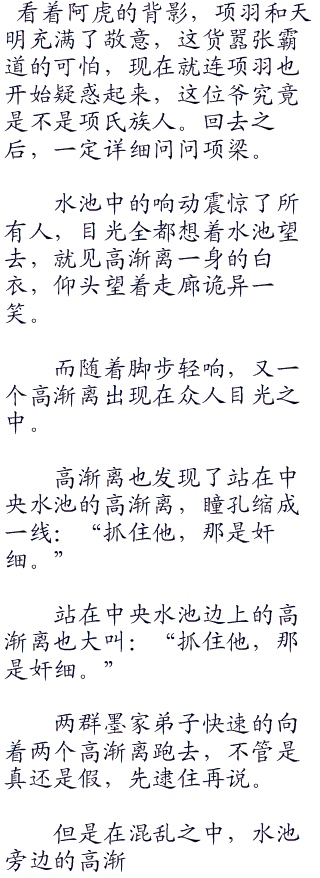 看着阿虎的背影，项羽和天
明充满了敬意，这货嚣张霸
道的可怕，现在就连项羽也
开始疑惑起来，这位爷究竟
是不是项氏族人。回去之
后，一定详细问问项梁。
水池中的响动震惊了所
有人，目光全都想着水池望
去，就见高渐离一身的白
衣，仰头望着走廊诡异一
笑。
而随着脚步轻响，又一
个高渐离出现在众人目光之
中。
高渐离也发现了站在中
央水池的高渐离，瞳孔缩成
一线：“抓住他，那是奸
细。”
站在中央水池边上的高
渐离也大叫：“抓住他，那
是奸细。”
两群墨家弟子快速的向
着两个高渐离跑去，不管是
真还是假，先逮住再说。
但是在混乱之中，水池
旁边的高渐